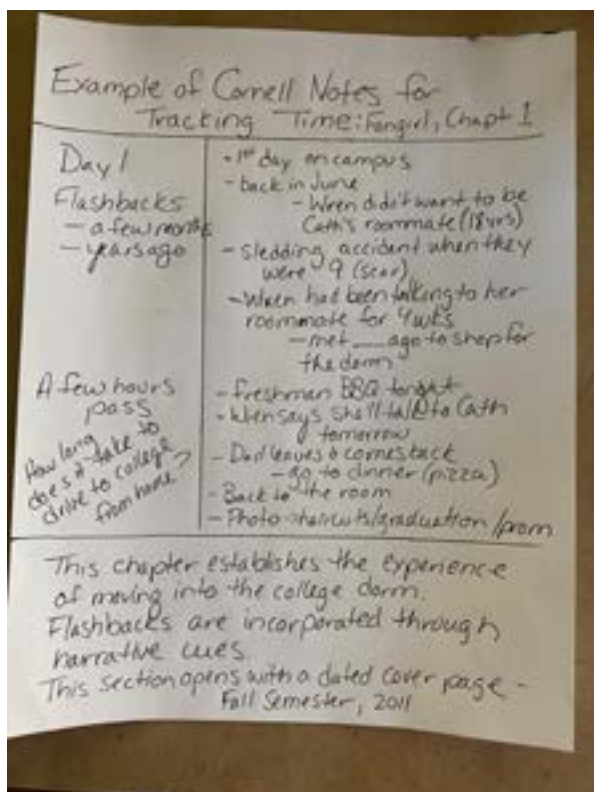 Example of Cornell Notes for
Tracking Time: Fangirl, Chapt 1
Day 1
Flashbacks
- a few months
- years ago
A few hours
pass
How long
does it take to
drive to college
from home?
- 1st day on campus
- back in June
- Wren didn't want to be
Cath's roommate (18 yrs)
- sledding accident when they
were 9 (scar)
- Wren had been talking to her
roommate for 4 wks
- met ___ ago to shop for
the dorm
- freshman BBQ tonight
- Wren says she'll talk to Cath
tomorrow
- Dad leaves & comes back
- go to dinner (pizza)
- Back to the room
- Photo haircuts/graduation/prom
This chapter establishes the experience
of moving into the college dorm.
Flashbacks are incorporated through
narrative cues.
This section opens with a dated cover page -
Fall Semester, 2011